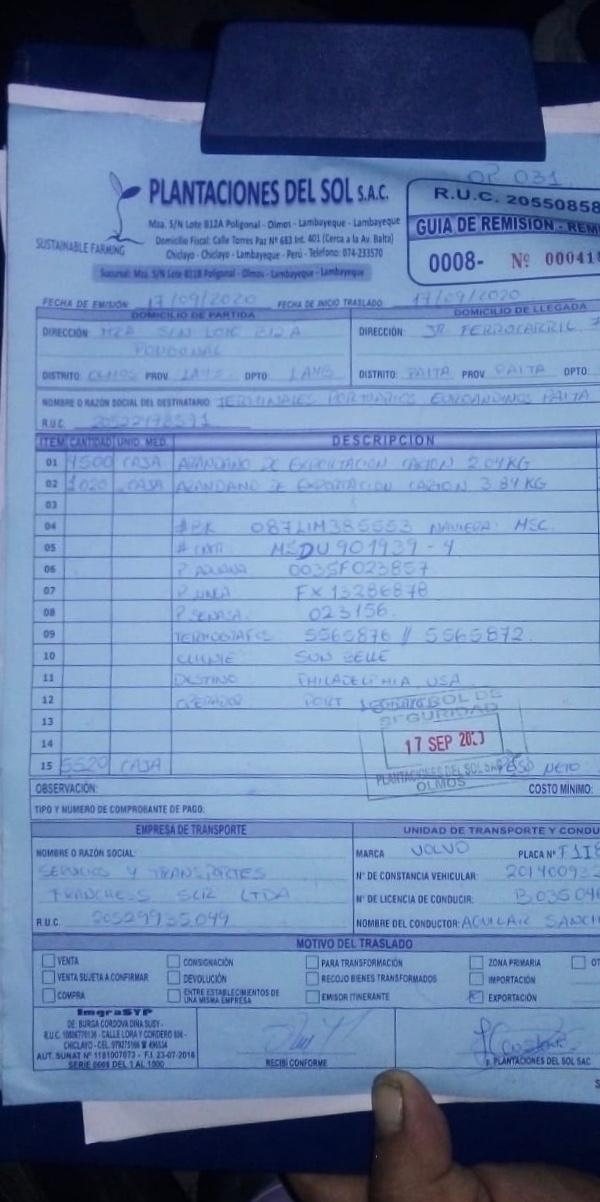 OP 031
PLANTACIONES DEL SOL S.A.C.
Mza. S/N Lote B12A Poligonal - Olmos - Lambayeque - Lambayeque
Domicilio Fiscal: Calle Torres Paz N° 683 Int. 401 (Cerca a la Av. Balta)
Chiclayo - Chiclayo - Lambayeque - Perú - Telefono: 074-233570
Sucursal: Mza. S/N Lote B12A Poligonal - Olmos - Lambayeque - Lambayeque
SUSTAINABLE FARMING
R.U.C. 20550858
GUIA DE REMISIÓN - REM
0008- Nº 000418
FECHA DE EMISIÓN: 17/09/2020 FECHA DE INICIO TRASLADO: 17/09/2020
DOMICILIO DE PARTIDA
DIRECCIÓN: MZA S/N LOTE B12A
DISTRITO: OLMOS PROV. LAMB. DPTO: LAMB
DOMICILIO DE LLEGADA
DIRECCIÓN: JR. FERROCARRIL
DISTRITO: PAITA PROV. PAITA DPTO:
NOMBRE O RAZON SOCIAL DEL DESTINATARIO TERMINALES PORTUARIOS EUROANDINOS PAITA
R.U.C.
ITEM CANTIDAD UNID. MED. DESCRIPCION
01 4500 CAJA ARANDANO DE EXPORTACION CARTON 2.04 KG
02 1020 CAJA ARANDANO DE EXPORTACION CARTON 3.84 KG
03
04 # BK 087LIM385553 NAVIERA: MSC.
05 # CONT MEDU 901939-4
06 P. ADUANA 0035F023857
07 P. LINEA FX13286878
08 P. SENASA 023156
09 TERMOGRAFOS 5565876 // 5565872
10 CLIENTE SUN BELLE
11 DESTINO PHILADELPHIA USA
12 OPERADOR PORT LOGISTICS
13
14
15 5520 CAJA PESO NETO
CONTROL DE
SEGURIDAD
17 SEP 2020
PLANTACIONES DEL SOL SAC
OLMOS
OBSERVACIÓN: COSTO MÍNIMO:
TIPO Y NUMERO DE COMPROBANTE DE PAGO:
EMPRESA DE TRANSPORTE
NOMBRE O RAZÓN SOCIAL:
SERVICIOS Y TRANSPORTES
FRANCHESS SCR LTDA
R.U.C. 20529935099
UNIDAD DE TRANSPORTE Y CONDU
MARCA VOLVO PLACA Nº F1I8
N° DE CONSTANCIA VEHICULAR: 201400932
N° DE LICENCIA DE CONDUCIR: B03504
NOMBRE DEL CONDUCTOR: AGUILAR SANCH
MOTIVO DEL TRASLADO
VENTA CONSIGNACIÓN PARA TRANSFORMACIÓN ZONA PRIMARIA OT
VENTA SUJETA A CONFIRMAR DEVOLUCIÓN RECOJO BIENES TRANSFORMADOS IMPORTACIÓN
COMPRA ENTRE ESTABLECIMIENTOS DE UNA MISMA EMPRESA EMISOR ITINERANTE EXPORTACIÓN
ImgraSYP
DE: BURGA CORDOVA DINA SUSY -
CALLE LORA Y CORDERO
CHICLAYO - CEL.
AUT. SUNAT N° 1181007073 - F.I. 23-07-2018
SERIE 0008 DEL 1 AL 1000
RECIBÍ CONFORME
P. PLANTACIONES DEL SOL SAC